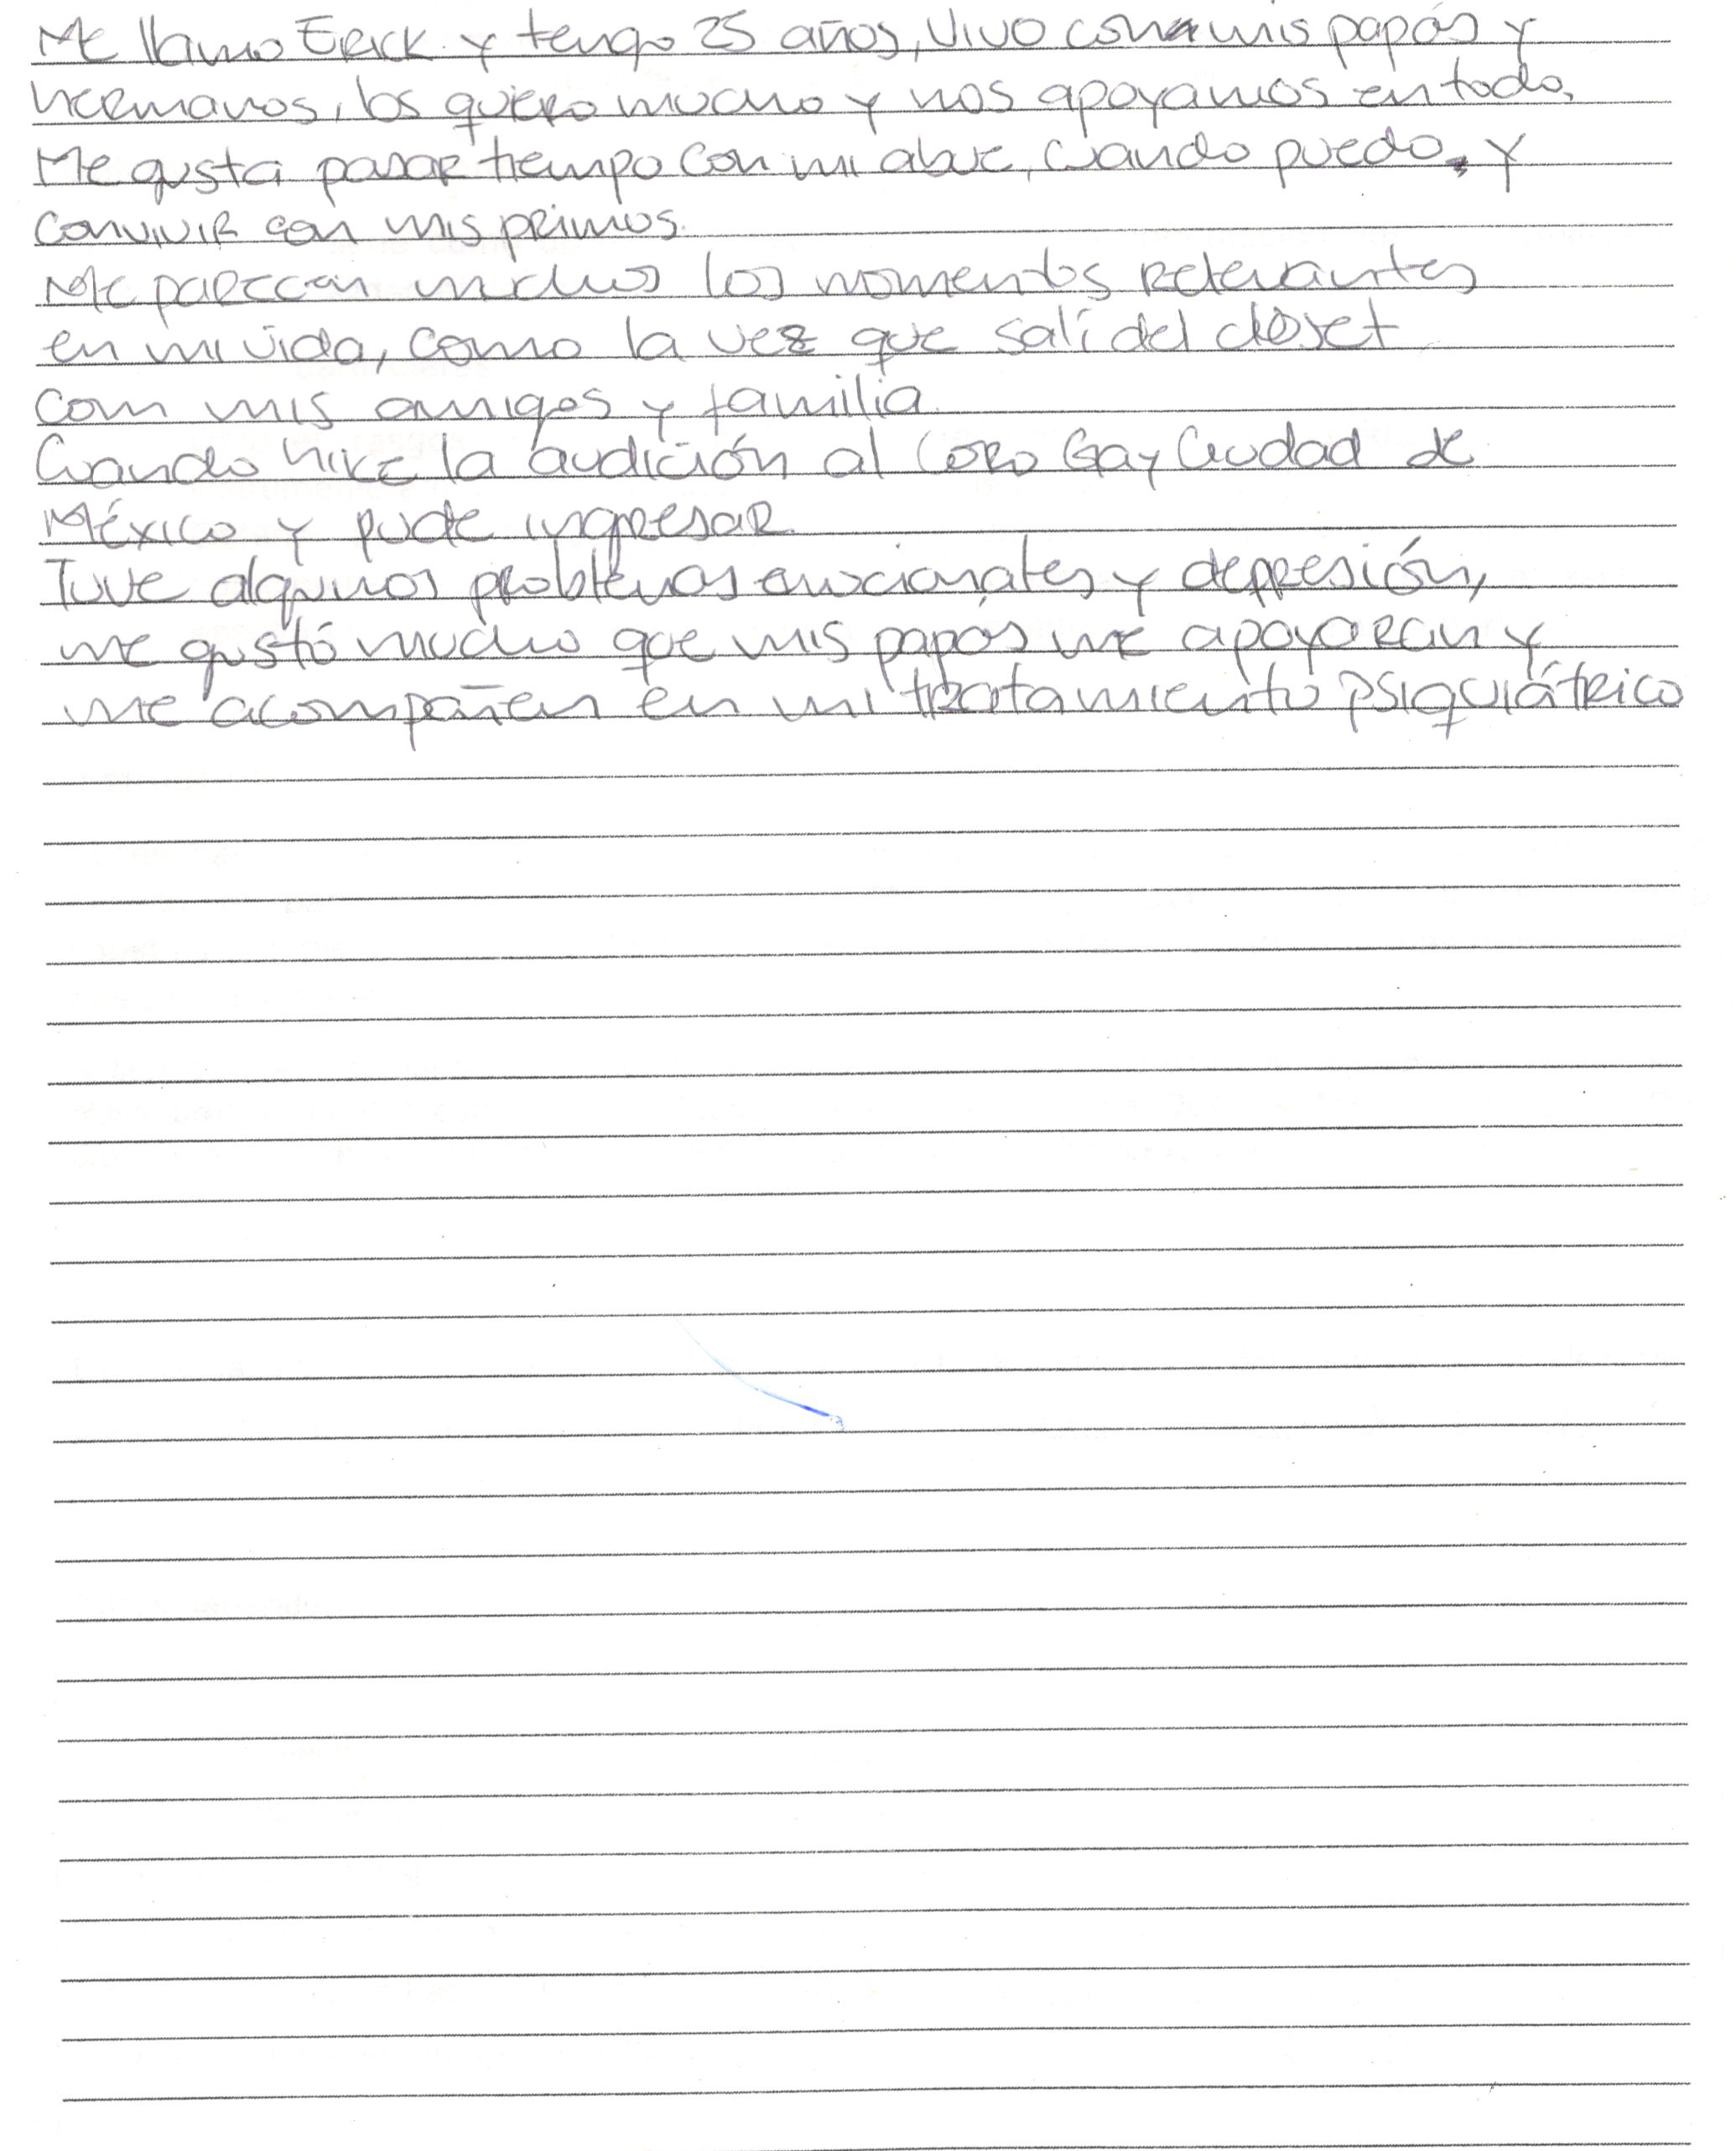 Me llamo Erick y tengo 25 años, vivo con mis papás y
hermanos, los quiero mucho y nos apoyamos en todo.
Me gusta pasar tiempo con mi abue, cuando puedo, y
convivir con mis primos.
Me parecen muchos los momentos relevantes
en mi vida, como la vez que salí del clóset
com mis amigos y familia.
Cuando hice la audición al Coro Gay Ciudad de
México y pude ingresar.
Tuve algunos problemas emocionales y depresión,
me gustó mucho que mis papás me apoyaran y
me acompañen en mi tratamiento psiquiátrico